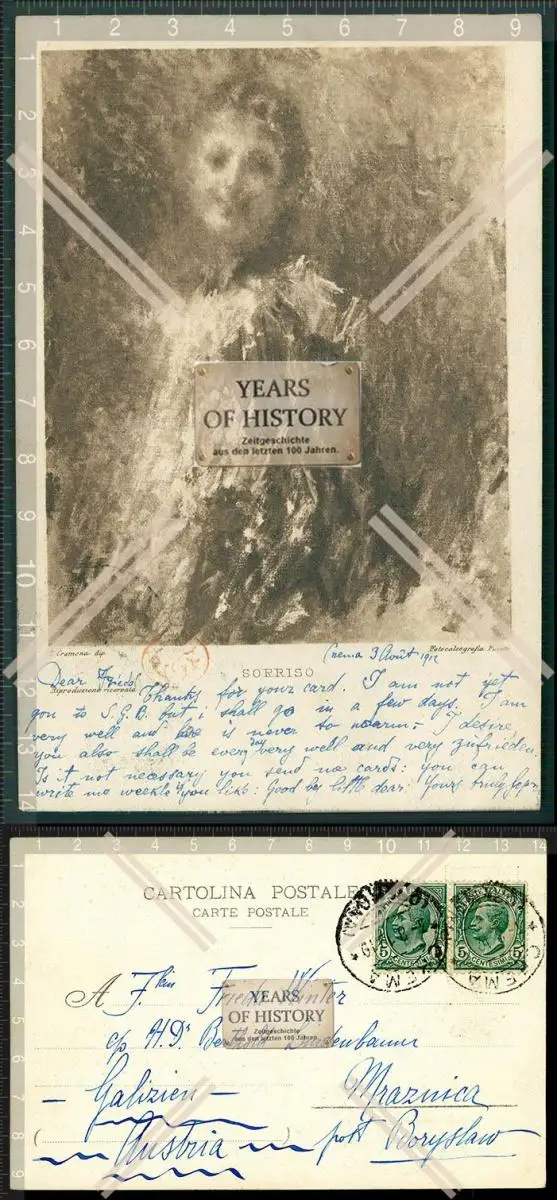 YEARS
OF HISTORY
Zeitgeschichte
aus den letzten 100 Jahren.
T. Cremona dip.
Fotocalcografia
SORRISO
Riproduzione riservata
3 Août 1912
Dear Friedol
Thanks for your card. I am not yet
gon to S.G.B. but i shall go in a few days. I am
very well and here is never so warm; I desire
you also shall be every day very well and very zufrieden.
Is it not necessary you send me cards: you can
write me weekly if you like: Good by little dear. Yours truly
CARTOLINA POSTALE
CARTE POSTALE
5 CENTESIMI 5
5 CENTESIMI 5
CREMA
A Flein Frieda Winter
YEARS
OF HISTORY
Zeitgeschichte
aus den letzten 100 Jahren.
c/o H. Dr Lindenbaum
- Galizien - Mraznica
Austria - post Boryslaw